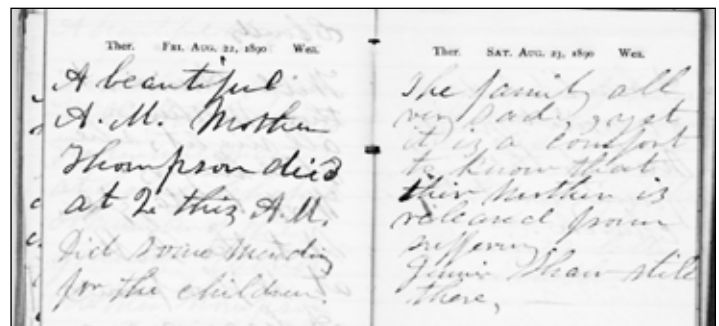 Ther. FRI. AUG. 22, 1890 Wea.
A beautiful
A.M. Mother
Thompson died
at 2 this A.M.
Did some mending
for the children.
Ther. SAT. AUG. 23, 1890 Wea.
The family all
very sad, yet
it is a comfort
to know that
their Mother is
released from
suffering
Shaw still
there,